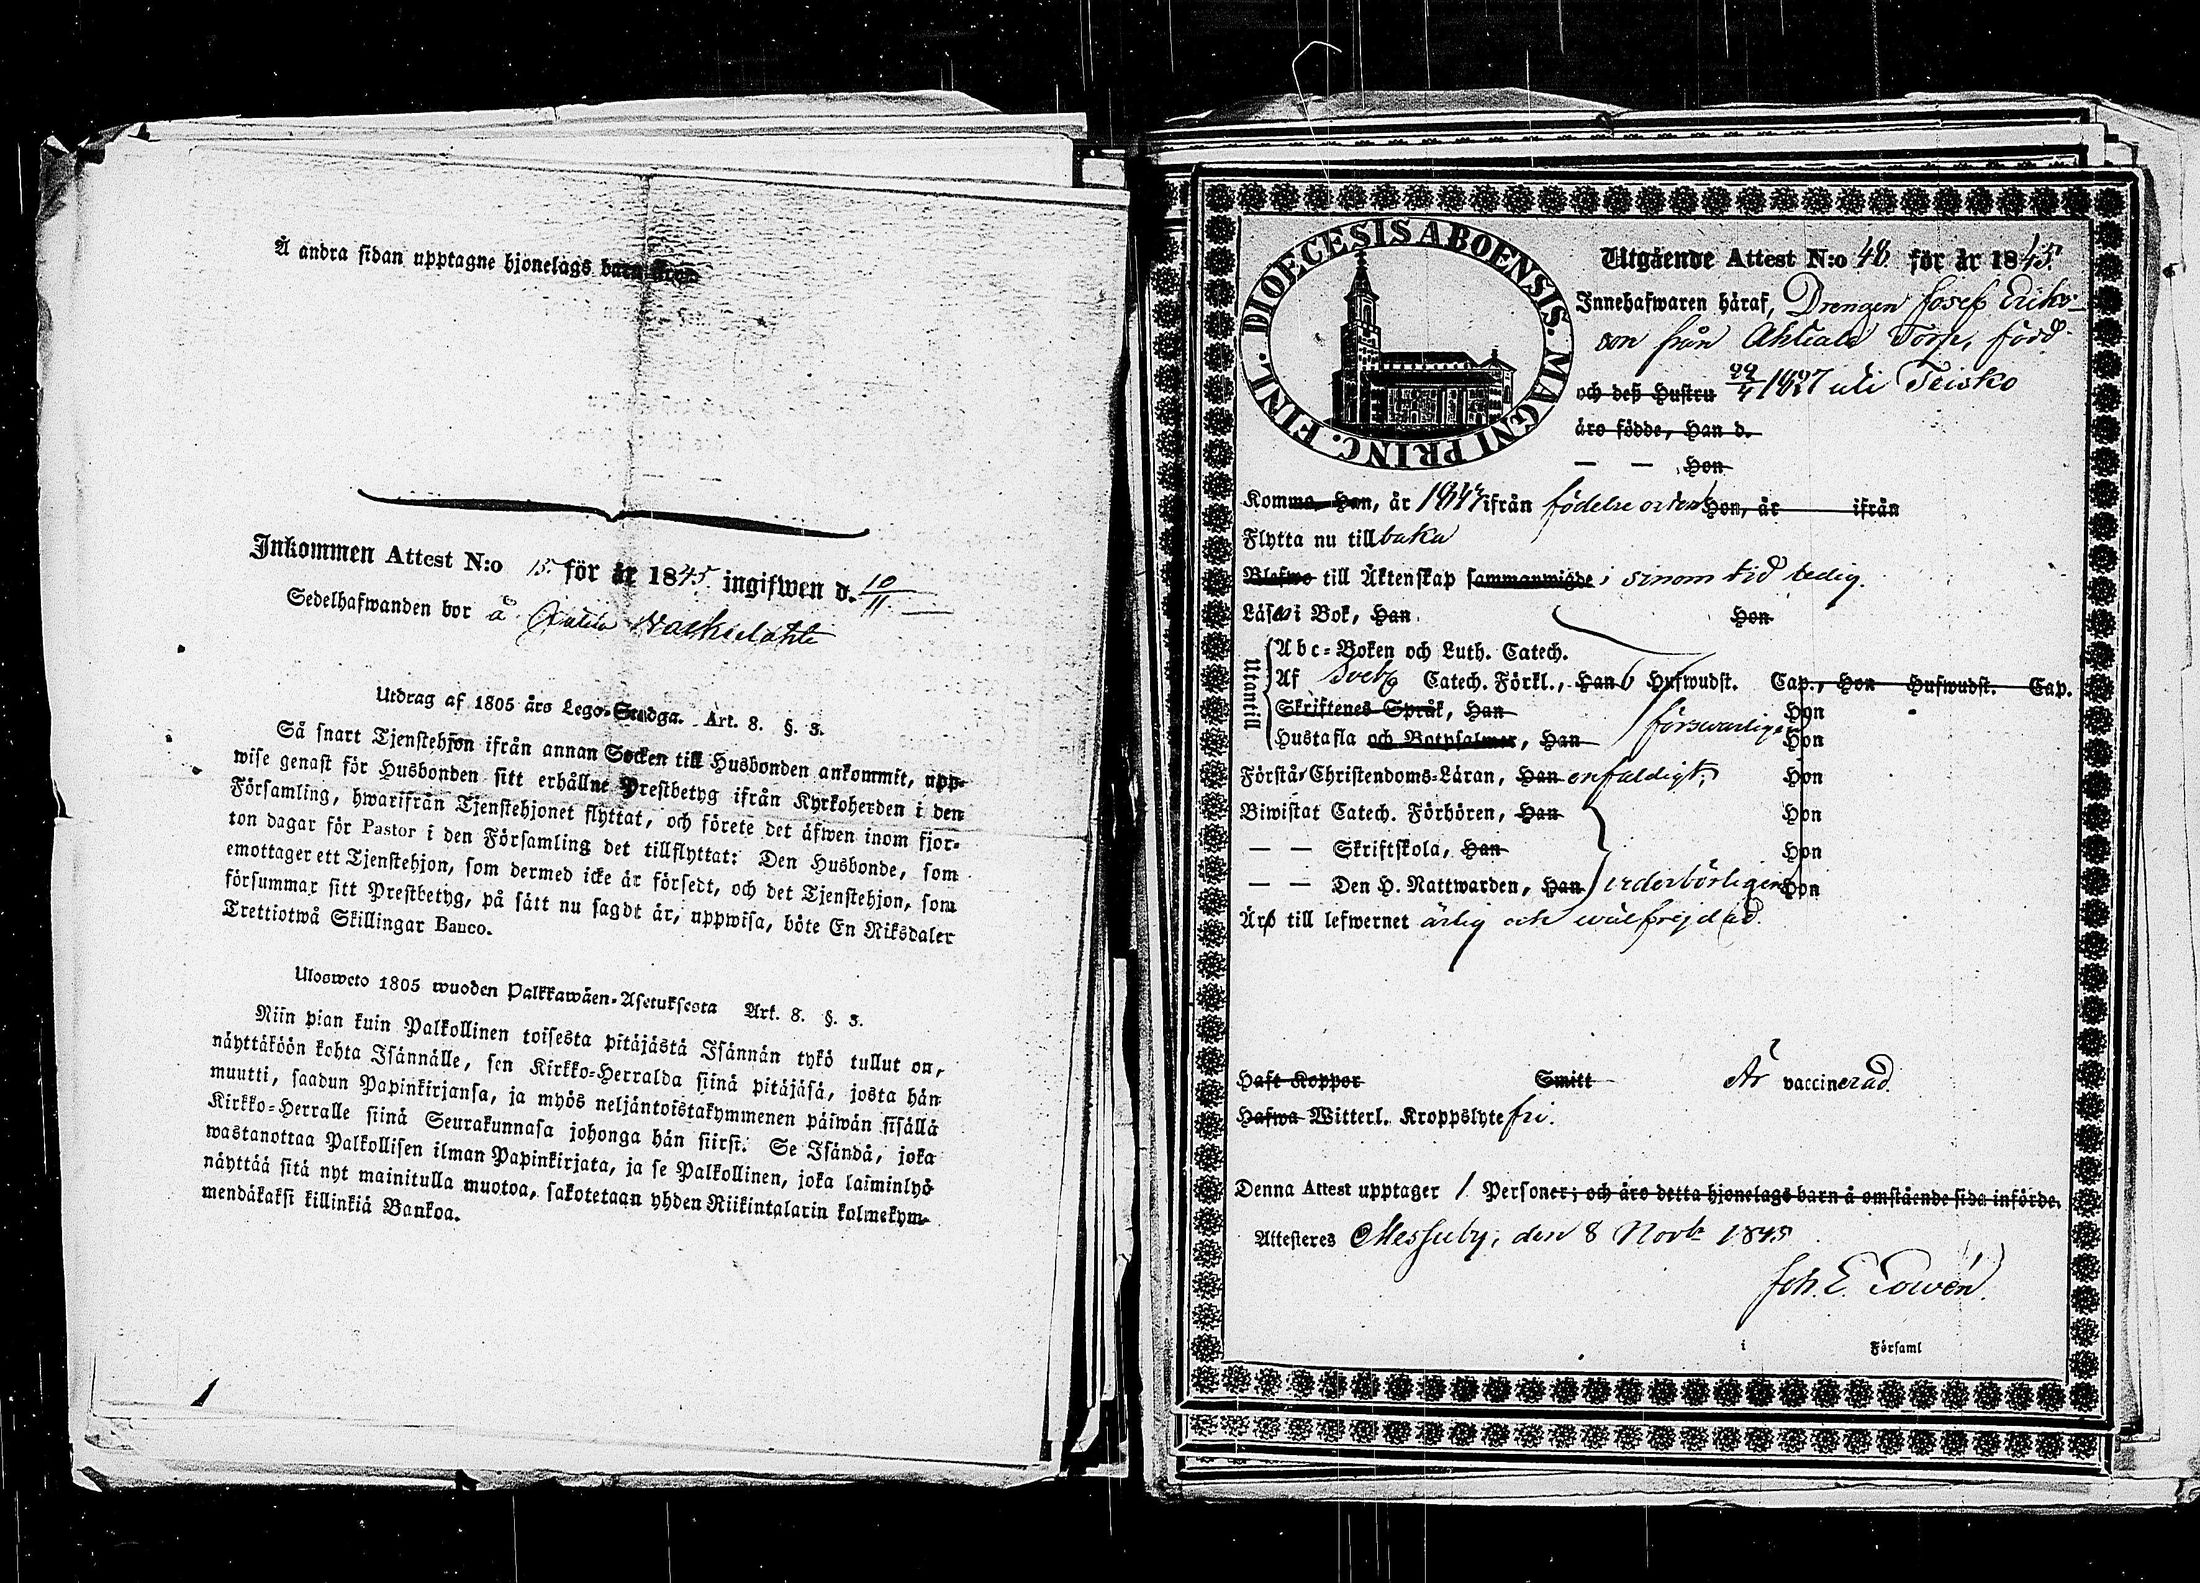 Å andra sidan upptagne hjonelags barn äro:
Inkommen Attest N:o 15. för år 1845 ingifwen d. 10/11.
Sedelhafwanden bor å
Utdrag af 1805 års Lego-Stadga. Art. 8. §. 3.
Så snart Tjenstehjon ifrån annan Socken till Husbonden ankommit, upp-
wise genast för Husbonden sitt erhållne Prestbetyg ifrån Kyrkoherden i den
Församling, hwarifrån Tjenstehjonet flyttat, och förete det äfwen inom fjor-
ton dagar för Pastor i den Församling det tillflyttat: Den Husbonde, som
emottager ett Tjenstehjon, som dermed icke är försedt, och det Tjenstehjon, som
försummar sitt Prestbetyg, på sätt nu sagdt är, uppwisa, böte En Riksdaler
Trettiotwå Skillingar Banco.
Ulosweto 1805 wuoden Palkkawäen-Asetuksesta Art. 8. §. 3.
Niin pian kuin Palkollinen toisesta pitäjästä Isännän tykö tullut on,
näyttäköön kohta Isännälle, sen Kirkko-Herralda siinä pitäjäsä, josta hän
muutti, saadun Papinkirjansa, ja myös neljäntoistakymmenen päiwän sisällä
Kirkko-Herralle siinä Seurakunnasa johonga hän siirsi: Se Isändä, joka
wastanottaa Palkollisen ilman Papinkirjata, ja se Palkollinen, joka laiminlyö
näyttää sitä nyt mainitulla muotoa, sakotetaan yhden Riikintalarin kolmekym-
mendäkaksi killinkiä Bankoa.
DIOECESIS ABOENSIS. MAGNI PRINC. FINL.
Utgående Attest N:o 48 för år 1845.
Innehafwaren häraf, Drengen Josef Eriks-
son från Ahtiala Torp, född
och deß Hustru 22/4 1827 uti Teisko
äro födde, Han d.
— — Hon
Komma, Han, år 1843 ifrån födelse orten Hon, år ifrån
Flytta nu tillbaka
Blefwo till Äktenskap sammanwigde i sinom tid ledig.
Läsa i Bok, Han Hon
Utantill
Abc-Boken och Luth. Catech.
Af Sveb. Catech. Förkl., Han 6 Hufwudst. Cap., Hon Hufwudst. Cap.
Skriftenes Språk, Han Hon
Hustafla och Botpsalmer, Han försvarligen Hon
Förstår Christendoms-Läran, Han enfaldigt; Hon
Biwistat Catech. Förhören, Han Hon
— — Skriftskola, Han Hon
— — Den H. Nattwarden, Han vederbörligen Hon
Äro till lefwernet ärlig och wälfrejdad.
Haft Koppor Smitt Är vaccinerad.
Hafwa Witterl. Kroppslyte fri.
Denna Attest upptager 1 Personer; och äro detta hjonelags barn å omstående sida införde.
Attesteres Messuby, den 8 Novb 1845
Joh. E.
i Församl